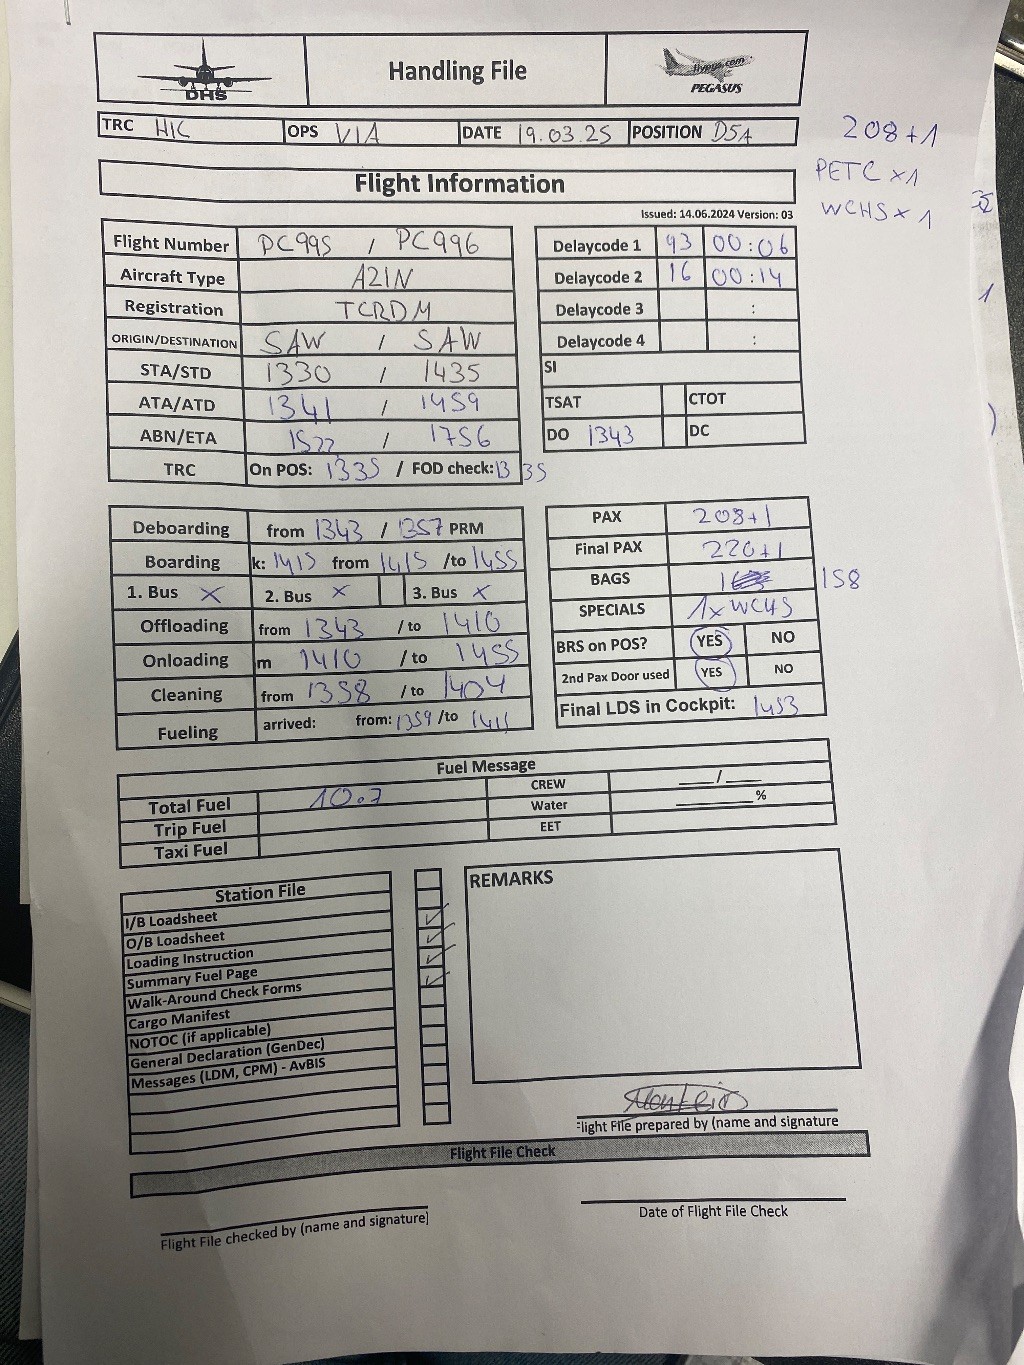 DHS
Handling File
flypgs.com
PEGASUS
TRC HIC OPS VIA DATE 19.03.25 POSITION D5A
208+1
PETC x1
WCHS x 1
Flight Information
Issued: 14.06.2024 Version: 03
Flight Number PC995 / PC996
Aircraft Type A21N
Registration TCRDM
ORIGIN/DESTINATION SAW / SAW
STA/STD 1330 / 1435
ATA/ATD 1341 / 1459
ABN/ETA 1522 / 1756
TRC On POS: 1335 / FOD check: 13 35
Delaycode 1 93 00:06
Delaycode 2 16 00:14
Delaycode 3 :
Delaycode 4 :
SI
TSAT CTOT
DO 1343 DC
Deboarding from 1343 / 1357 PRM
Boarding k: 1415 from 1415 /to 1455
1. Bus X 2. Bus X 3. Bus X
Offloading from 1343 /to 1410
Onloading m 1410 /to 1455
Cleaning from 1358 /to 1404
Fueling arrived: from: 1359 /to 1411
PAX 208+1
Final PAX 220+1
BAGS 158
SPECIALS 1x WCHS
BRS on POS? YES NO
2nd Pax Door used YES NO
Final LDS in Cockpit: 1453
Fuel Message
Total Fuel 10.7 CREW ___/___
Trip Fuel Water ______%
Taxi Fuel EET
Station File
I/B Loadsheet
O/B Loadsheet
Loading Instruction
Summary Fuel Page
Walk-Around Check Forms
Cargo Manifest
NOTOC (if applicable)
General Declaration (GenDec)
Messages (LDM, CPM) - AvBIS
REMARKS
Flight File prepared by (name and signature
Flight File Check
Flight File checked by (name and signature)
Date of Flight File Check